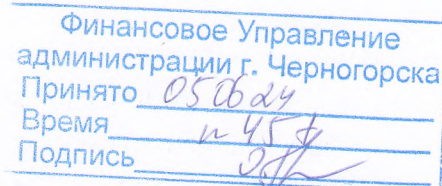 Финансовое Управление
администрации г. Черногорска
Принято 05 06 24
Время 45
Подпись